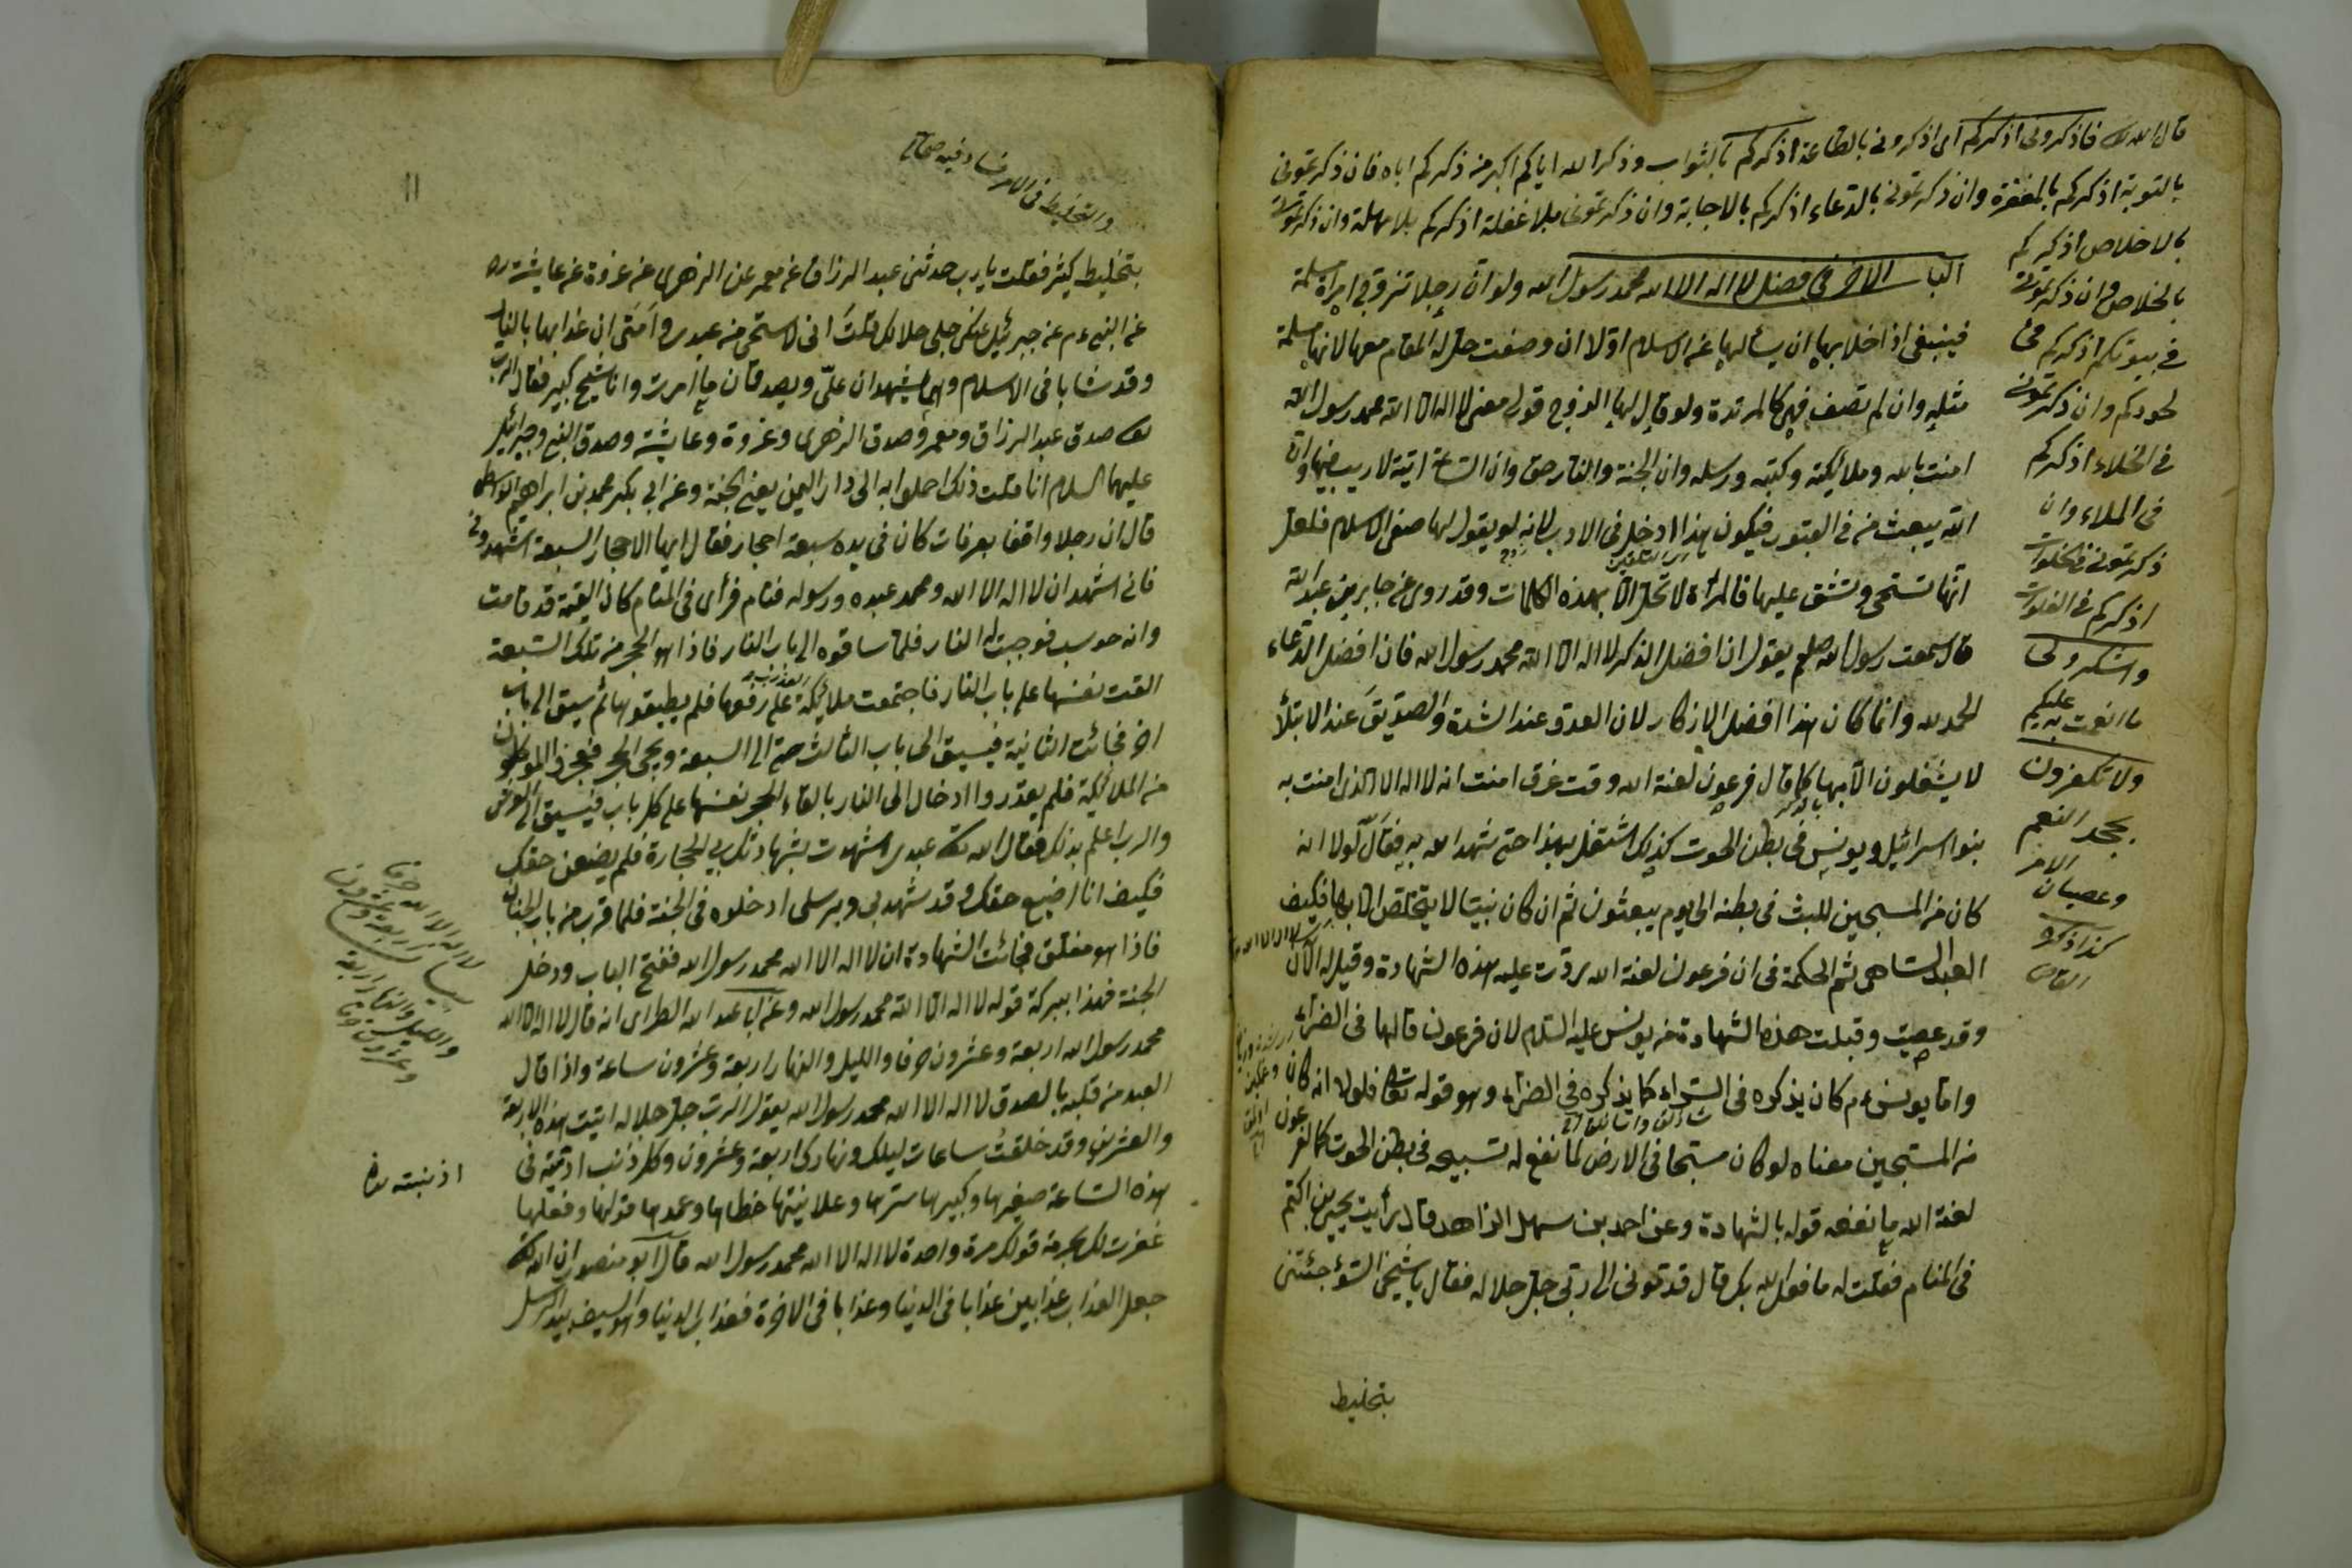 قال الله تعالى فاذكرونى اذكركم اى اذكرونى بالطاعة اذكركم بالثواب وذكر الله اياكم اكبر من ذكركم اياه فان ذكرتمونى
بالتوبة اذكركم بالمغفرة وان ذكرتمونى بالدعاء اذكركم بالاجابة وان ذكرتمونى بلا غفلة اذكركم بلا مهلة وان ذكرتمونى
بالاخلاص اذكركم
بالخلاص وان ذكرتمونى
فى بيوتكم اذكركم فى
لحودكم وان ذكرتمونى
فى الخلاء اذكركم
فى الملاء وان
ذكرتمونى فى الخلوات
اذكركم فى الفلوات
واشكروا لى
ما انعمت به عليكم
ولا تكفرون
بجحد النعم
وعصيان الامر
كذا ذكره
القاضى
الباب الاخر فى فضل لا اله الا الله محمد رسول الله ولو ان رجلا تزوج امرأة مسلمة
فينبغى اذا خلا بها ان يسألها عن الاسلام اولا ان وصفت حل له المقام معها لانها مسلمة
مثله وان لم تصف فهى كالمرتدة ولو قال لها الزوج قولى معنى لا اله الا الله محمد رسول الله
امنت بالله وملائكته وكتبه ورسله وان الجنة والنار حق وان الساعة اتية لا ريب فيها وان
الله يبعث من فى القبور فيكون هذا ادخل فى الادب لانه لو يقول لها صفى الاسلام فلعل
انها تستحى وتشق عليها فالمرأة لا تحل الا بهذه الكلمات وقد روى عن جابر بن عبد الله
قال سمعت رسول الله صلعم يقول ان افضل الذكر لا اله الا الله محمد رسول الله فان افضل الدعاء
الحمد لله وانما كان هذا افضل الاذكار لان العدو عند الشدة والصديق عند الابتلاء
لا يشتغلون الا بها كما قال فرعون لعنة الله وقت غرق امنت انه لا اله الا الذى امنت به
بنوا اسرائيل ويونس فى بطن الحوت كذلك اشتغل بهذا حتى شهد الله به فقال لولا انه
كان من المسبحين للبث فى بطنه الى يوم يبعثون ثم ان كان نبيا لا يتخلص الا بها فكيف
العبد الساهى ثم الحكمة فى ان فرعون لعنة الله ردت عليه هذه الشهادة وقيل له الان
وقد عصيت وقبلت هذه الشهادة من يونس عليه السلام لان فرعون قالها فى الضراء
واما يونس ءم كان يذكره فى السراء كما يذكره فى الضراء وهو قوله تعالى فلولا انه كان
من المسبحين معناه لو كان مسبحا فى الارض لما نفع له تسبيحه فى بطن الحوت كما لفرعون
لعنة الله ما نفعه قوله بالشهادة وعن احمد بن سهل الزاهد قال رأيت يحيى بن اكثم
فى المنام فقلت له ما فعل الله بك قال قد تمونى الى ربى جل جلاله فقال يا شيخى السوء جئتنى
بتخليط
11
والتخليط فى الامر افساد فيه صحاح
بتخليط كثير فقلت يا رب حدثنى عبد الرزاق عن معمر عن الزهرى عن عروة عن عايشة ره
عن النبى ءم عن جبرئيل عنك جل جلالك قلت انى لاستحى من عبدى وامتى ان عذابها بالنار
وقد شابا فى الاسلام وهما يشهدان على ويصدقان ما امرت وانا شيخ كبير فقال الرب
تعالى صدق عبد الرزاق ومعمر وصدق الزهرى وعروة وعايشة وصدق النبى وجبرائيل
عليهما السلام انا قلت ذلك احملوا به الى دار اليمين يعنى الجنة وعن ابى بكر محمد بن ابراهيم الواسطى
قال ان رجلا واقفا بعرفات كان فى يده سبعة احجار فقال ايها الاحجار السبعة اشهدونى
فانى اشهد ان لا اله الا الله ومحمد عبده ورسوله فنام فرأى فى المنام كان القيمة قد قامت
وانه حوسب فوجبت له النار فلما ساقوه الى باب النار فاذا هو الحجر من تلك السبعة
القت نفسها على باب النار فاجتمعت ملائكة على رفعها فلم يطيقوها ثم سيق الى باب
اخر فجائت الثانية فسيق الى باب الثالث حتى الى السبعة ويجئ الحجر فعجز الموكلون
من الملائكة فلم يقدروا ادخال الى النار بالقاء الحجر نفسها على كل باب فسيق الى العرض
والرب اعلم بذلك فقال الله تعالى عبدى اشهدت بشهادتك بى الحجارة فلم يضيعن حقك
فكيف انا اضيع حقك وقد شهد بى وبرسلى ادخلوه فى الجنة فلما قرب من باب الجنان
فاذا هو مغلق فجائت الشهادة ان لا اله الا الله محمد رسول الله ففتح الباب ودخل
الجنة فهذا ببركة قوله لا اله الا الله محمد رسول الله وعن ابى عبد الله الطرائى انه قال لا اله الا الله
محمد رسول الله اربعة وعشرون حرفا والليل والنهار اربعة وعشرون ساعة واذا قال
العبد من قلبه بالصدق لا اله الا الله محمد رسول الله يقول الرب جل جلاله اتيت هذه الاربعة
والعشرين وقد خلقت ساعات ليلك ونهارك اربعة وعشرون وكل ذنب اذنبته فى
هذه الساعة صغيرها وكبيرها سترها وعلانيتها خطاها وعمدها قولها وفعلها
غفرت لك بحرمة قولك مرة واحدة لا اله الا الله محمد رسول الله قال ابو منصور ان الله تعالى
جعل العذاب عذابين عذابا فى الدنيا وعذابا فى الاخرة فعذاب الدنيا والسيف بيد الرسل
لا اله الا الله حرفا
اربعة وعشرون
والليل والنهار اربعة
وعشرون
اذنبته